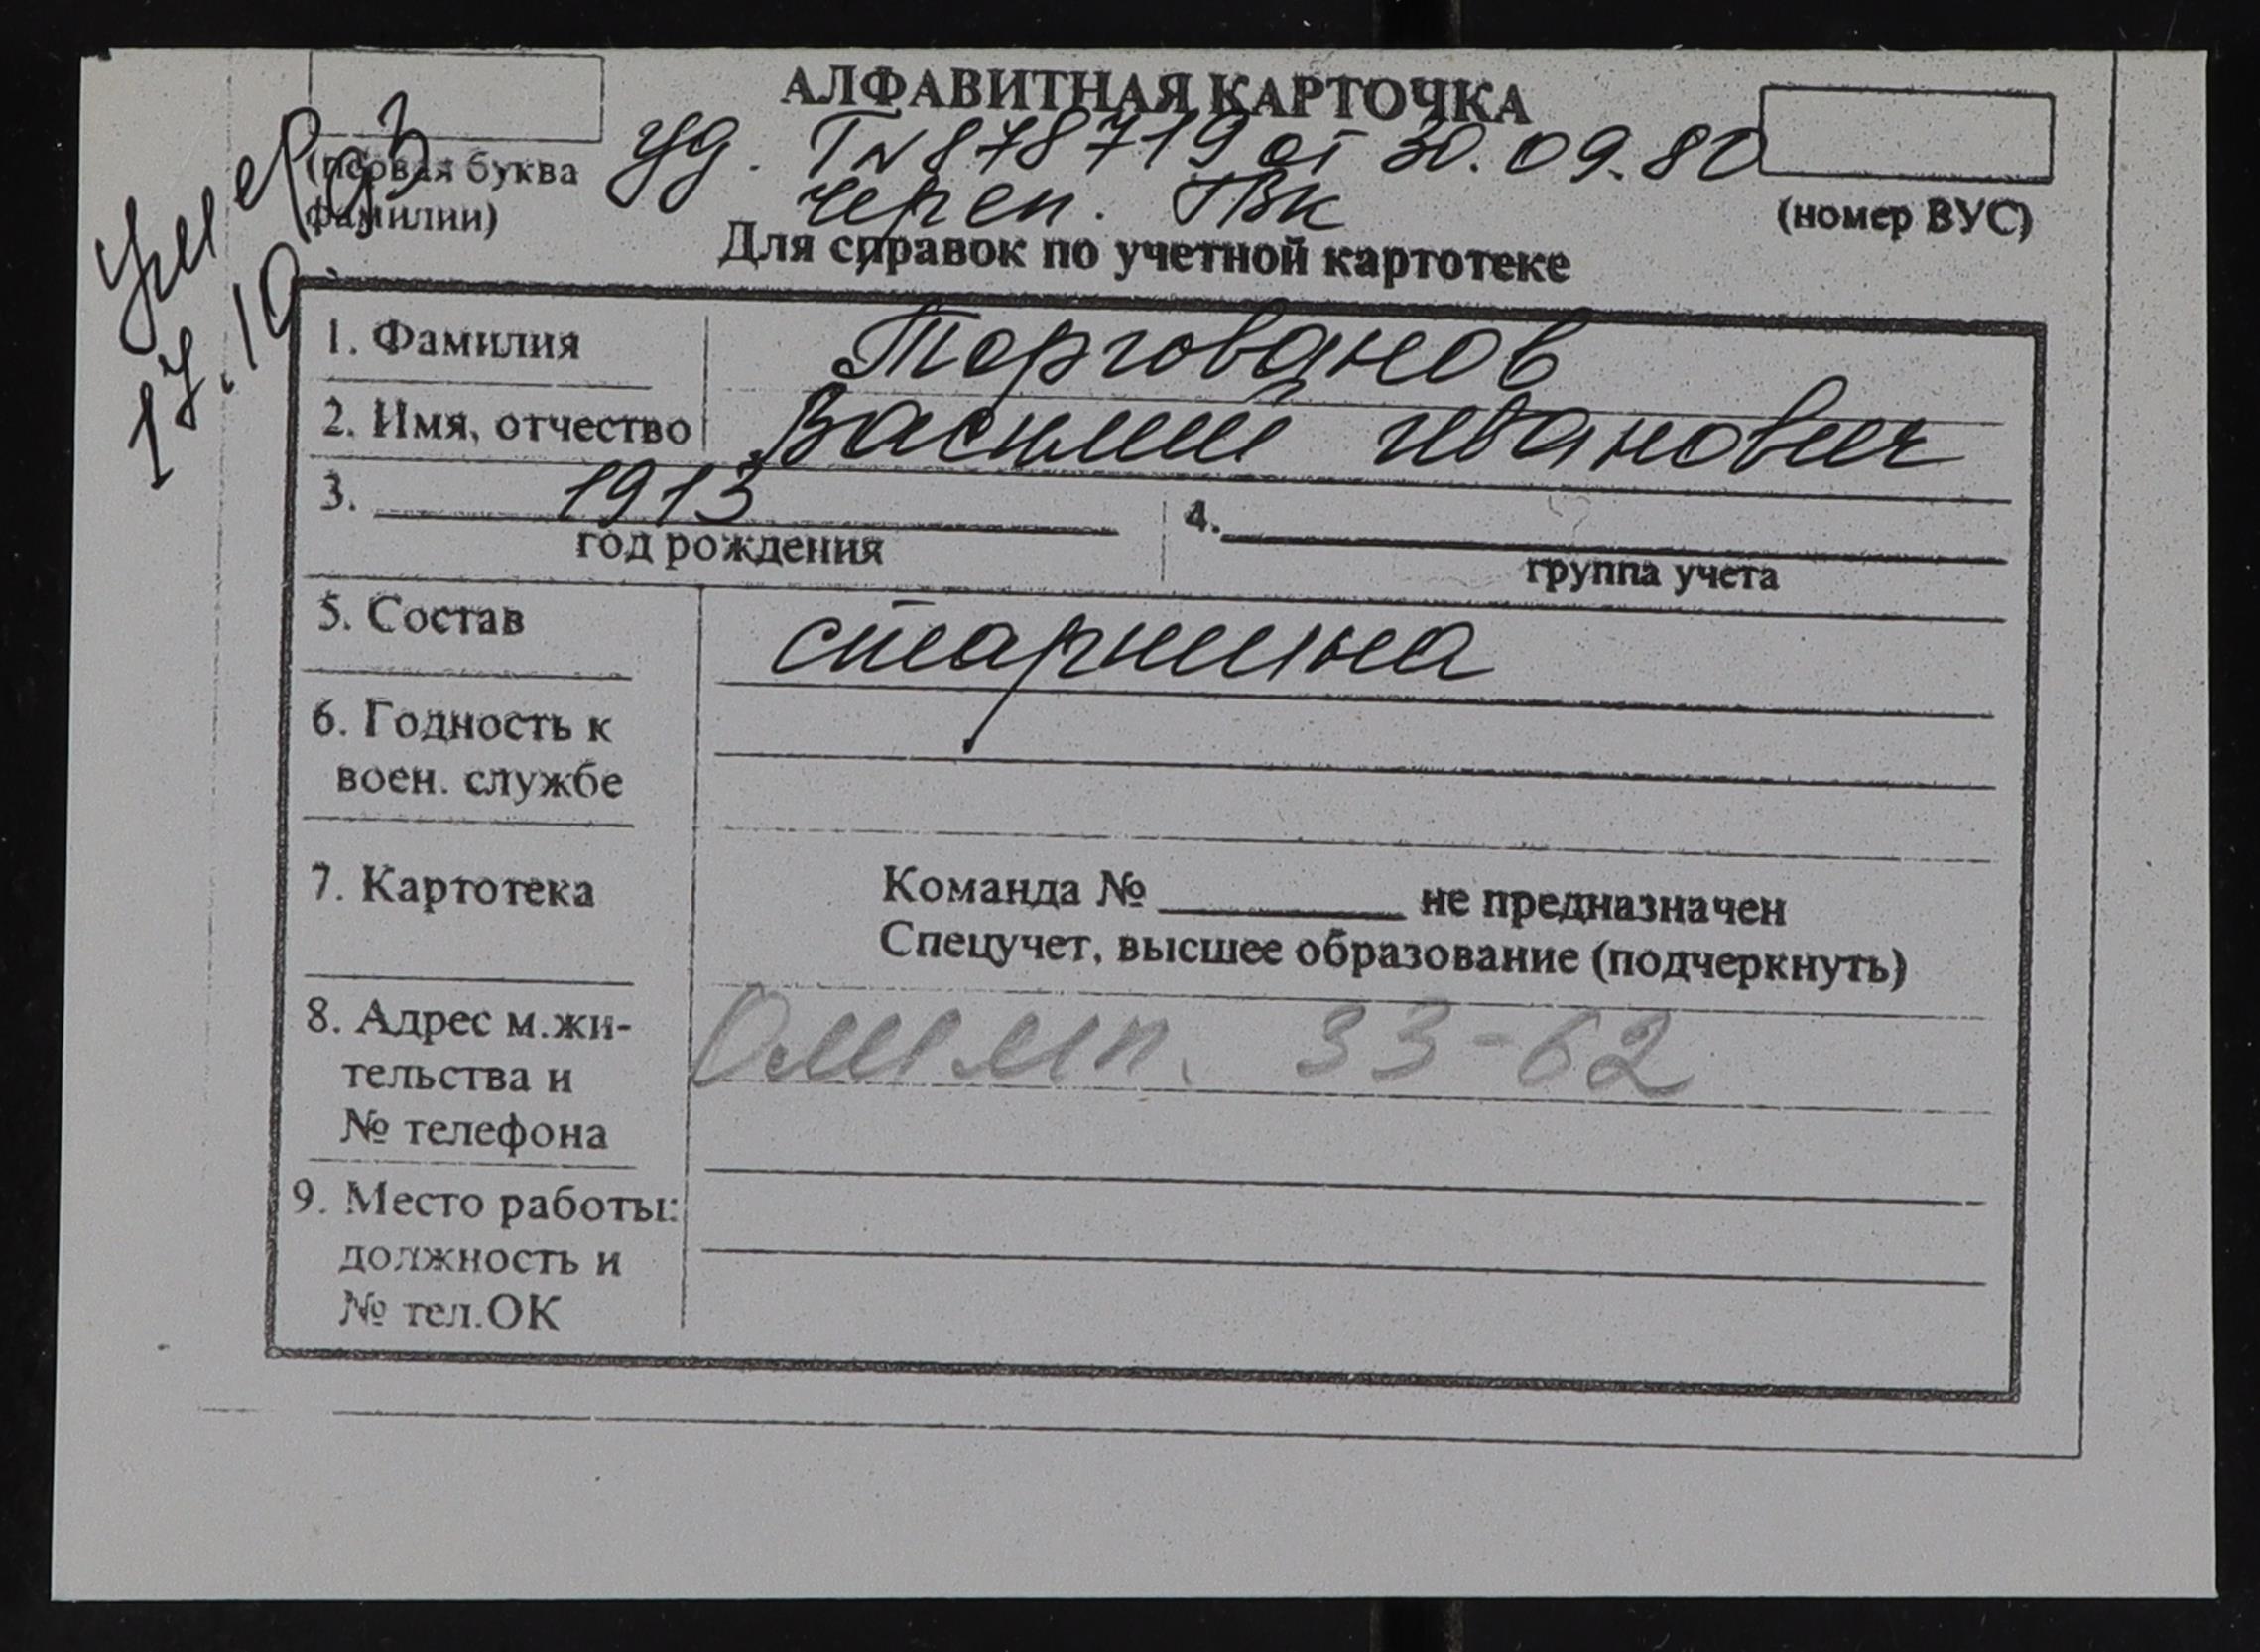 АЛФАВИТНАЯ КАРТОЧКА
(первая буква
фамилии)
уд. Т № 878719 от 30.09.80
череп. ГВК
(номер ВУС)
Умер
17.10.93
Для справок по учетной картотеке
1. Фамилия Торгованов
2. Имя, отчество Василий Иванович
3. 1913
год рождения
4.
группа учета
5. Состав старшина
6. Годность к
воен. службе
7. Картотека
Команда № ________ не предназначен
Спецучет, высшее образование (подчеркнуть)
8. Адрес м.жи-
тельства и
№ телефона
Олимп. 33-62
9. Место работы:
должность и
№ тел.ОК